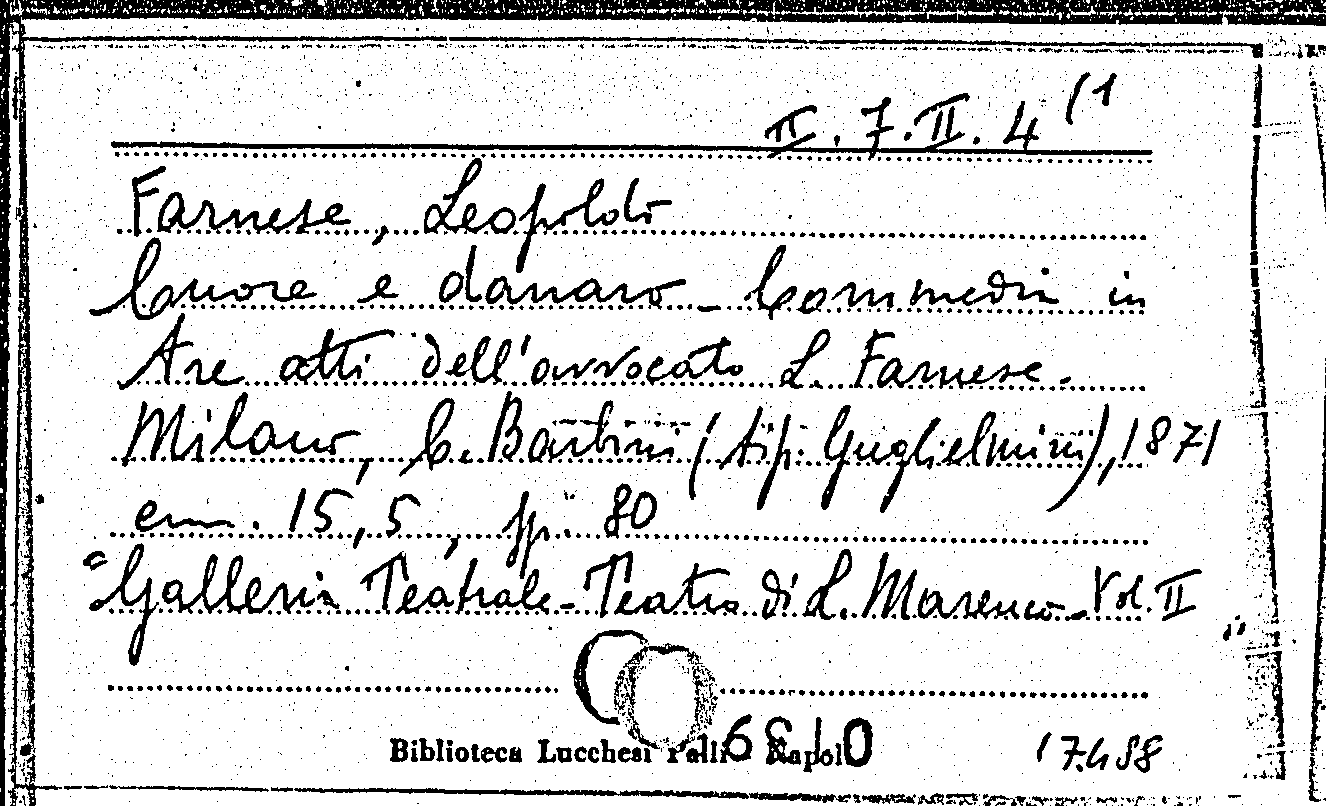 II. 7. II. 4 (1
Farnese, Leopoldo
Cuore e danaro - Commedia in
tre atti dell'avvocato L. Farnese.
Milano, C. Barbini (tip. Guglielmini), 1871
cm. 15,5, pp. 80
"Galleria Teatrale - Teatro di L. Marenco - Vol. II"
Biblioteca Lucchesi Palli Napoli
17.488